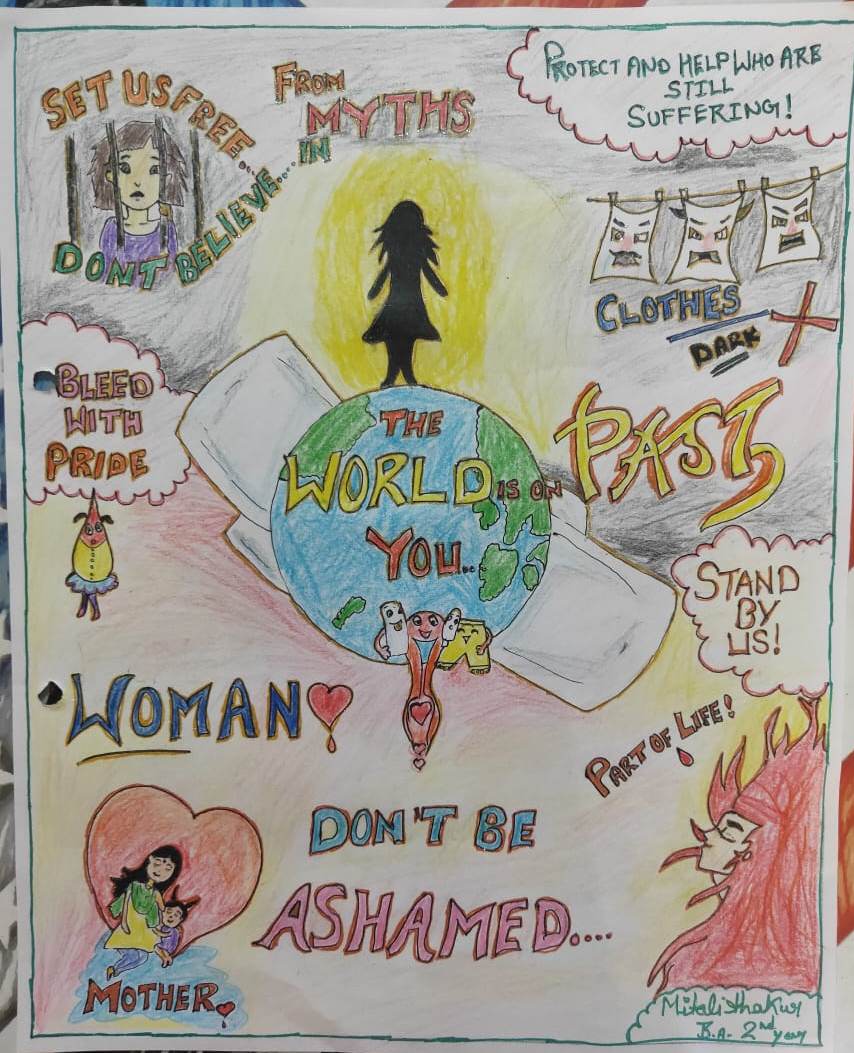 SET US FREE...
FROM
MYTHS
DONT BELIEVE.... IN
PROTECT AND HELP WHO ARE
STILL
SUFFERING!
CLOTHES
DARK
PAST
BLEED
WITH
PRIDE
THE
WORLD IS ON
YOU...
STAND
BY
US!
WOMAN
PART OF LIFE!
DON'T BE
ASHAMED....
MOTHER
Mitali Thakur
B.A. 2nd year